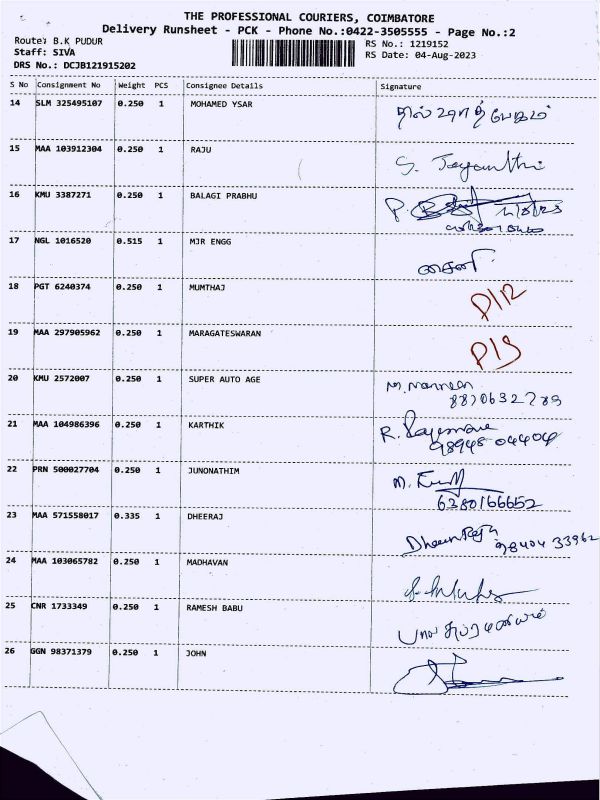 THE PROFESSIONAL COURIERS, COIMBATORE
Delivery Runsheet - PCK - Phone No.:0422-3505555 - Page No.:2
Route: B.K PUDUR
Staff: SIVA
DRS No.: DCJB121915202
RS No.: 1219152
RS Date: 04-Aug-2023
S No Consignment No Weight PCS Consignee Details Signature
14 SLM 325495107 0.250 1 MOHAMED YSAR
15 MAA 103912304 0.250 1 RAJU S. Jayanthi
16 KMU 3387271 0.250 1 BALAGI PRABHU P.
17 NGL 1016520 0.515 1 MJR ENGG
18 PGT 6240374 0.250 1 MUMTHAJ P/12
19 MAA 297905962 0.250 1 MARAGATESWARAN P/9
20 KMU 2572007 0.250 1 SUPER AUTO AGE
21 MAA 104986396 0.250 1 KARTHIK R.
98948 04404
22 PRN 500027704 0.250 1 JUNONATHIM M.
6380166652
23 MAA 571558017 0.335 1 DHEERAJ
98404 33962
24 MAA 103065782 0.250 1 MADHAVAN
25 CNR 1733349 0.250 1 RAMESH BABU
26 GGN 98371379 0.250 1 JOHN